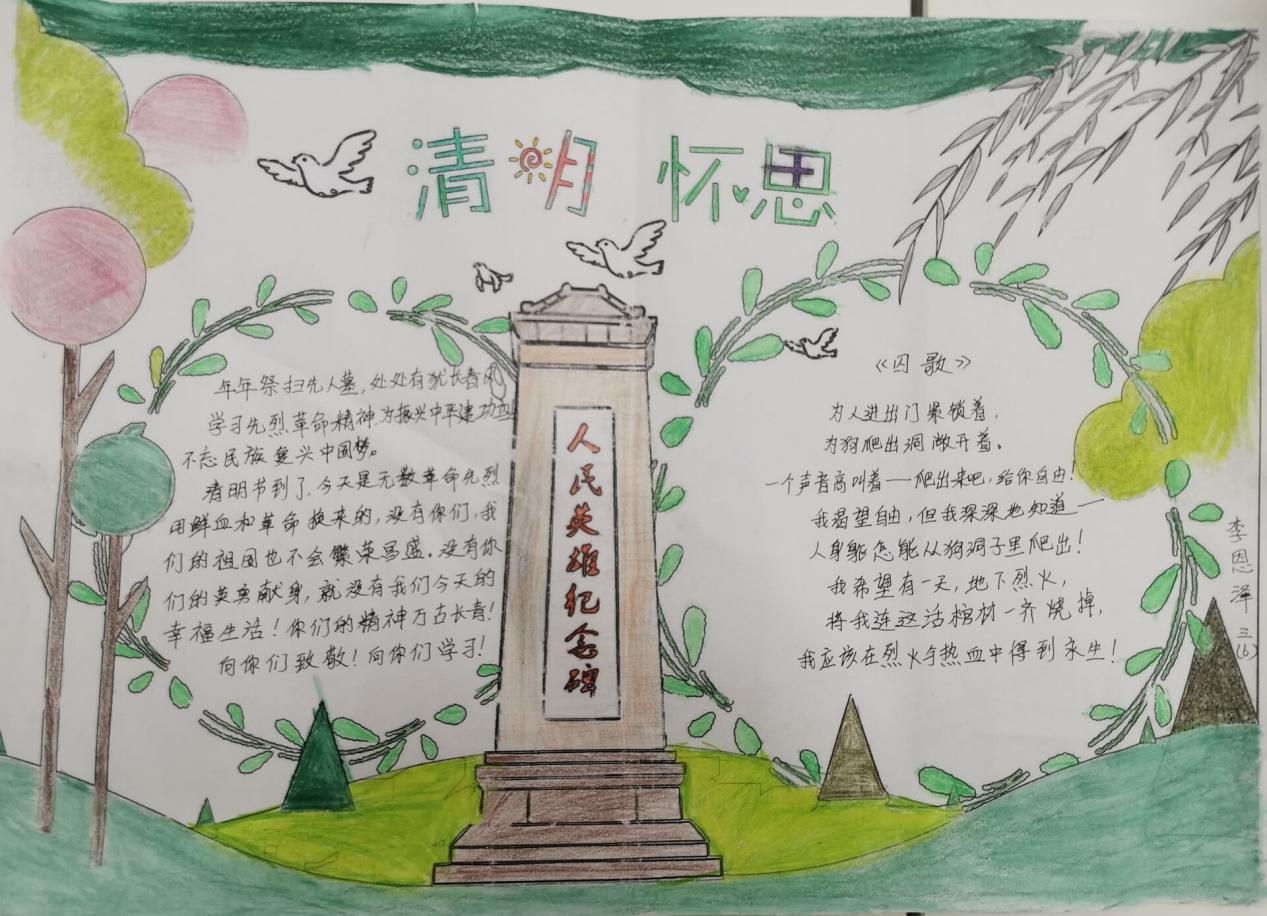 清明 怀思
年年祭扫先人墓,处处有犹长青风
学习先烈革命精神,为振兴中华建功业
不忘民族复兴中国梦。
清明节到了,今天是无数革命先烈
用鲜血和革命换来的,没有你们,我
们的祖国也不会繁荣昌盛。没有你
们的英勇献身,就没有我们今天的
幸福生活!你们的精神万古长青!
向你们致敬!向你们学习!
人民英雄纪念碑
《囚歌》
为人进出门紧锁着,
为狗爬出洞敞开着。
一个声音高叫着——爬出来吧,给你自由!
我渴望自由,但我深深地知道—
人身躯怎能从狗洞子里爬出!
我希望有一天,地下烈火,
将我连这活棺材一齐烧掉,
我应该在烈火与热血中得到永生!
李恩泽 三(6)